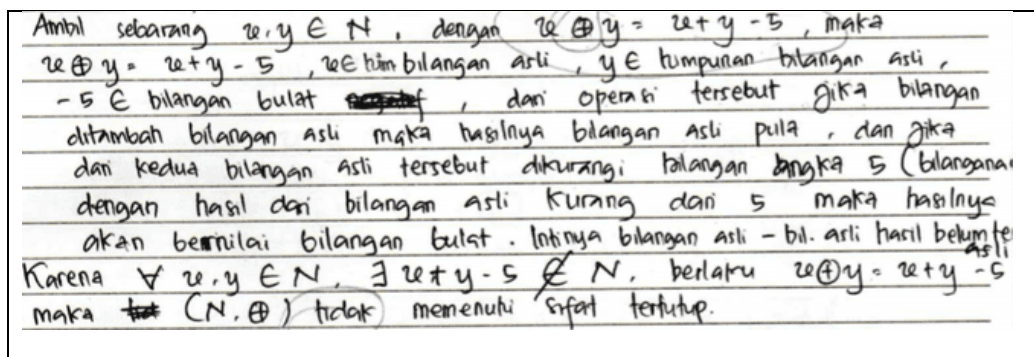 Ambil sebarang x, y ∈ N, dengan x ⊕ y = x + y - 5, maka
x ⊕ y = x + y - 5, x ∈ him bilangan asli, y ∈ himpunan bilangan asli,
-5 ∈ bilangan bulat, dari operasi tersebut jika bilangan
ditambah bilangan asli maka hasilnya bilangan asli pula, dan jika
dari kedua bilangan asli tersebut dikurangi bilangan angka 5 (bilangana
dengan hasil dari bilangan asli kurang dari 5 maka hasilnya
akan bernilai bilangan bulat. Intinya bilangan asli - bil. asli hasil belum te
asli
Karena ∀ x, y ∈ N, ∃ x + y - 5 ∉ N, berlaku x ⊕ y = x + y - 5
maka (N, ⊕) tidak memenuhi sifat tertutup.